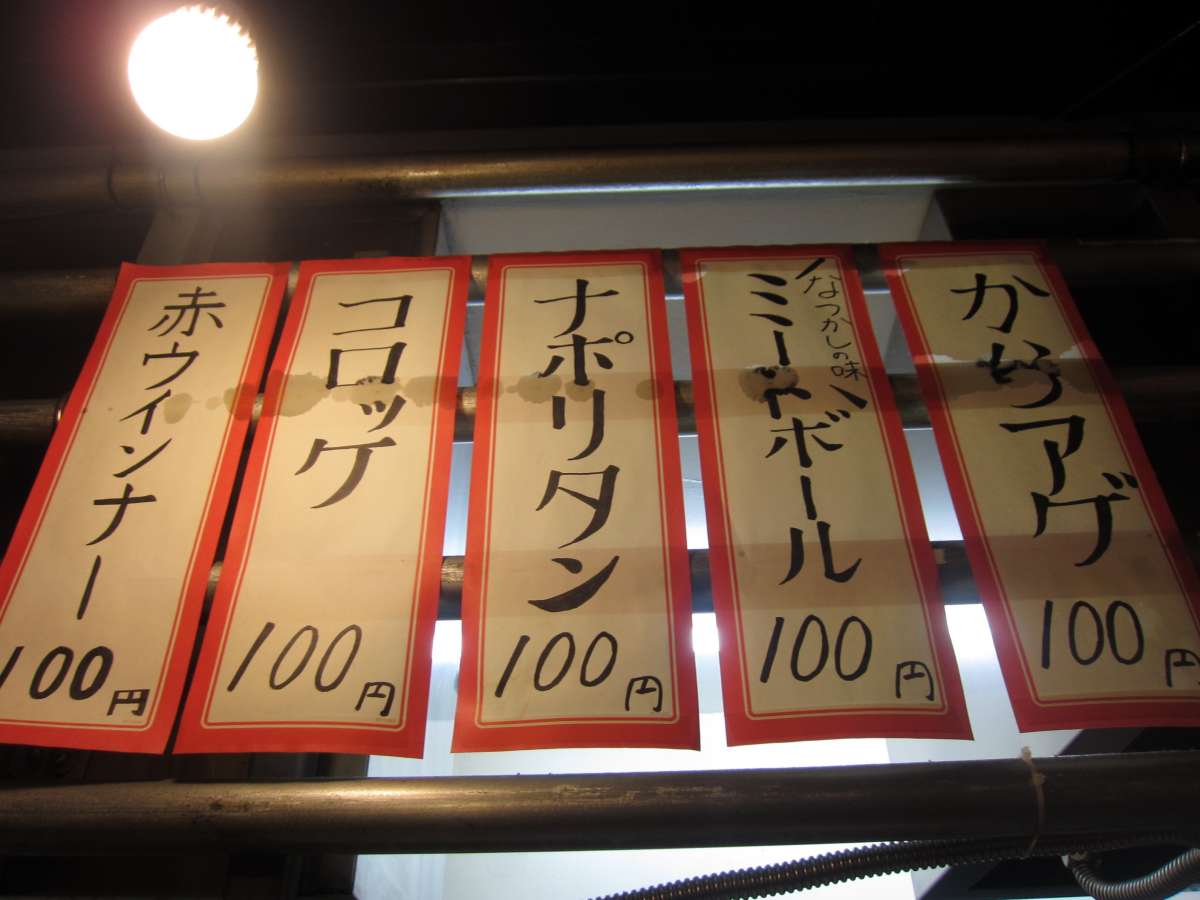 からアゲ
100円
なつかしの味
ミートボール
100円
ナポリタン
100円
コロッケ
100円
赤ウィンナー
100円